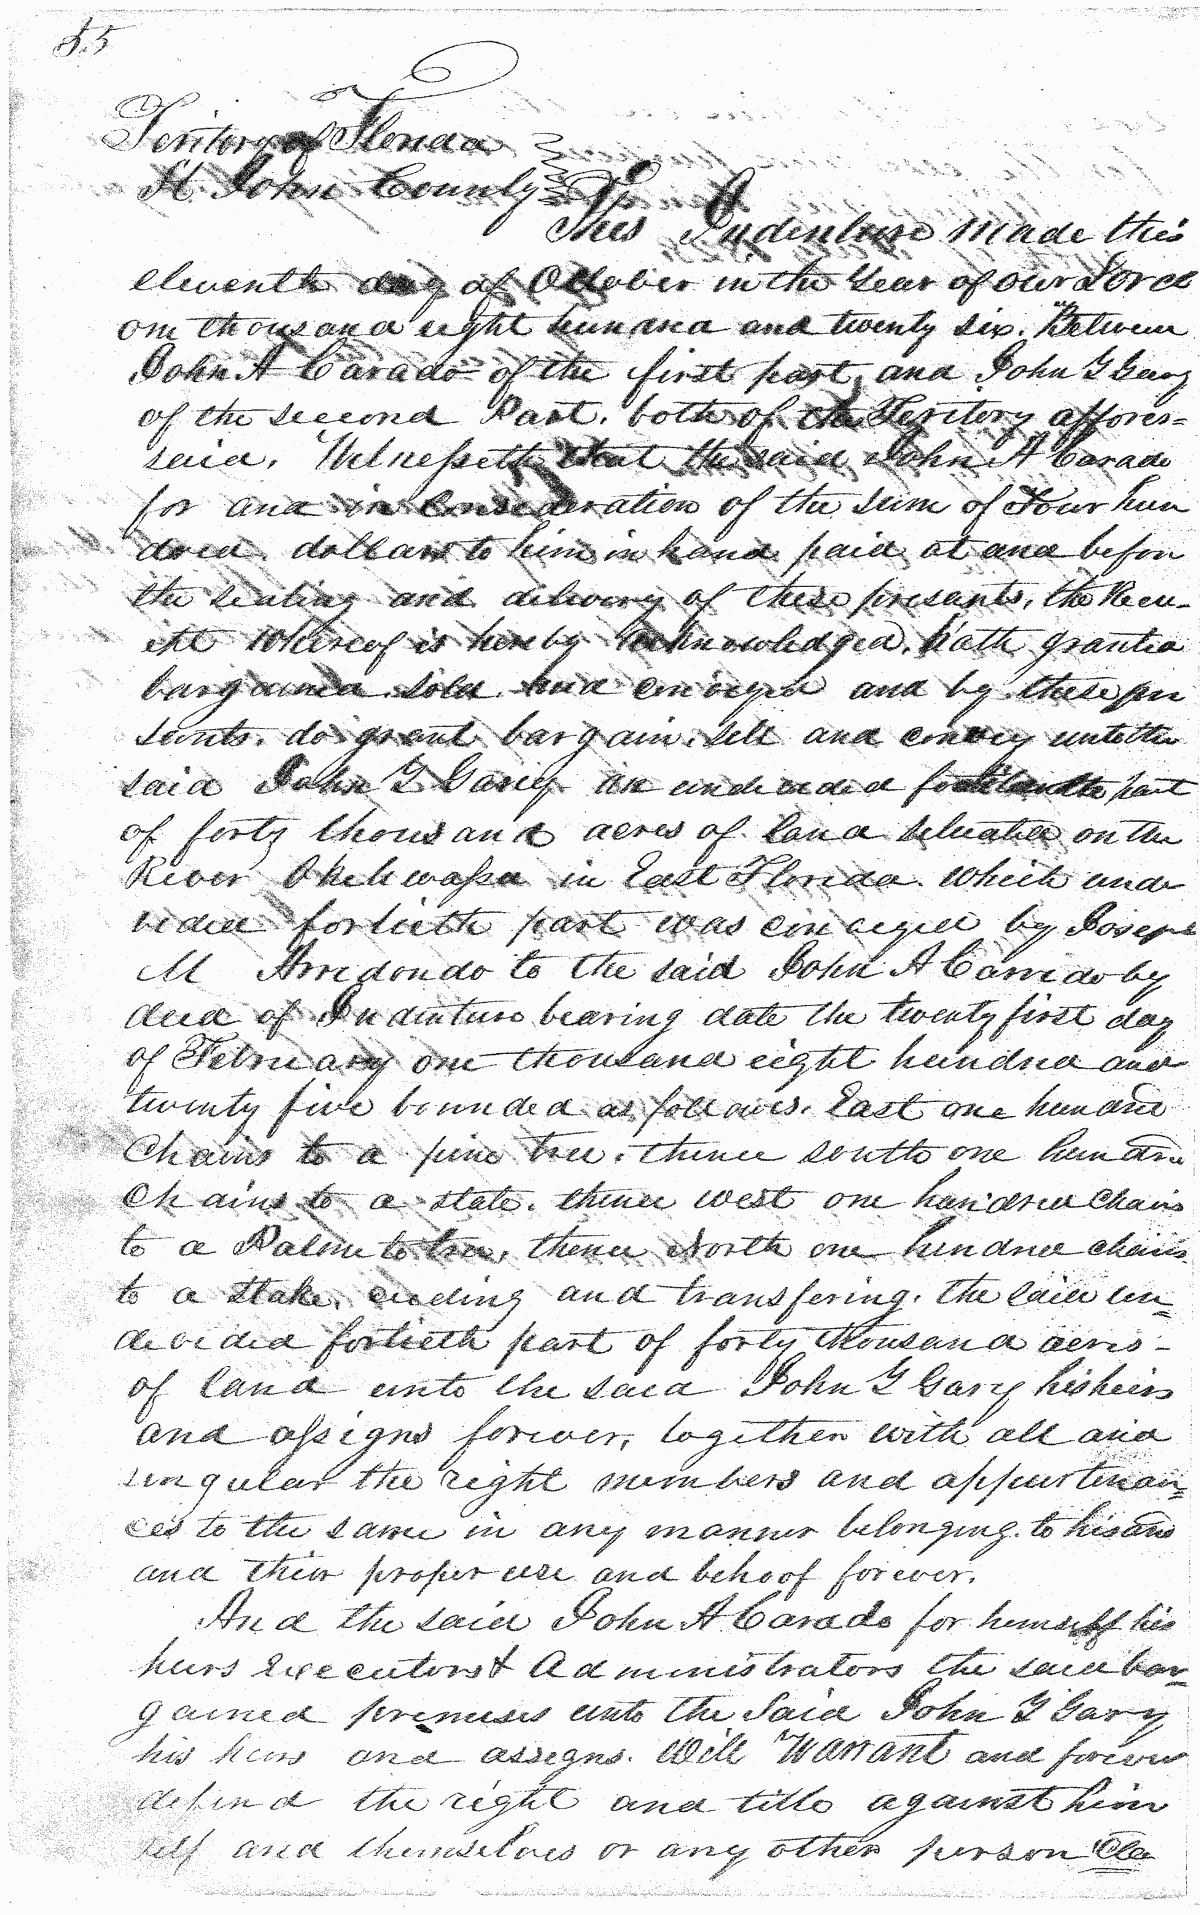 55
Teritory of Florida
St. John County
This Indenture made this
eleventh day of October in the Year of our Lord
one thousand eight hundred and twenty six. Between
John A Carado of the first part, and John G Gary
of the second Part. both of the Teritory affores=
said. Witnesseth that the said John A Carado
for and in Consideration of the sum of Four hun
dred. dollars to him in hand paid, at and before
the sealing and delivery of these presants, the Rece-
ipt Whereof is hereby Acknowledged, hath granted
bargained. sold. And conveyed and by these pre
sents. do grant bargain. sell and convey unto the
said John G Garey an undevided fortieth part
of forty thousand acres of land situated on the
River Okehwassa in East Florida. Which unde
vided fortieth part was conveyed by Joseph
M Arredondo to the said John A Carrido by
deed of Indenture bearing date the twenty first day
of February one thousand eight hundred and
twenty five bounded as follows. East one hundred
Chains to a pine tree. thence south one hundred
Chains to a state. thence west one hundred Chains
to a Palmeto tree, thence North one hundred chains
to a Stake. ceeding and transfering. the said un=
devided fortieth part of forty thousand acres-
of land unto the said John G Gary his heirs
and assigns forever, together with all and
singular the right members and appurtenan=
ces to the same in any manner belonging. to his
and their proper use and behoof forever.
And the said John A Carado for himself his
heirs Executors & Administrators the said bar=
gained premises unto the Said John G Gary
his heirs and assigns. Will Warrant and forever
defend the right and title against him
self and themselves or any other person Cla